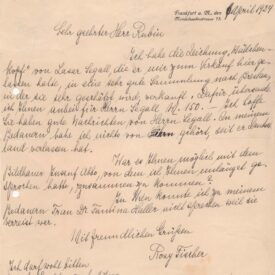 Frankfurt a. M., den April 1924
Sehr geehrter Herr Rubin
Ich habe die Zeichnung, Mädchen-
kopf" von Lasar Segall, die er mir zum Verkauf hier ge-
lassen hatte, in eine sehr gute Sammlung nach
in der sie sehr verkauft. Dafür überweise
ich Ihnen anbei für Herrn Segall M. 150.— Ich hoffe
Sie haben gute Nachrichten von Herrn Segall. Zu meinem
Bedauern habe ich nichts von gehört seit er Deutsch
land verlassen hat.
Wär es Ihnen möglich mit dem
Bildhauer Ernst Otto, von dem ich Ihnen unlängst ge-
sprochen hatte, zusammen zu kommen?
In Wien konnte ich zu meinem
Bedauern Frau Dr. Tantine Haller nicht sprechen weil sie
verreist war.
Mit freundlichen Grüßen
Rosy Fischer
Ich darf wohl bitten